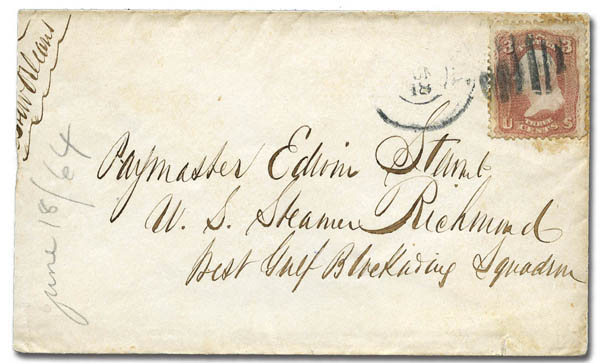 New Orleans
June 18/64
3 3
U THREE CENTS S
18
Paymaster Edwin
U. S. Steamer Richmond
West Gulf Blockading Squadron